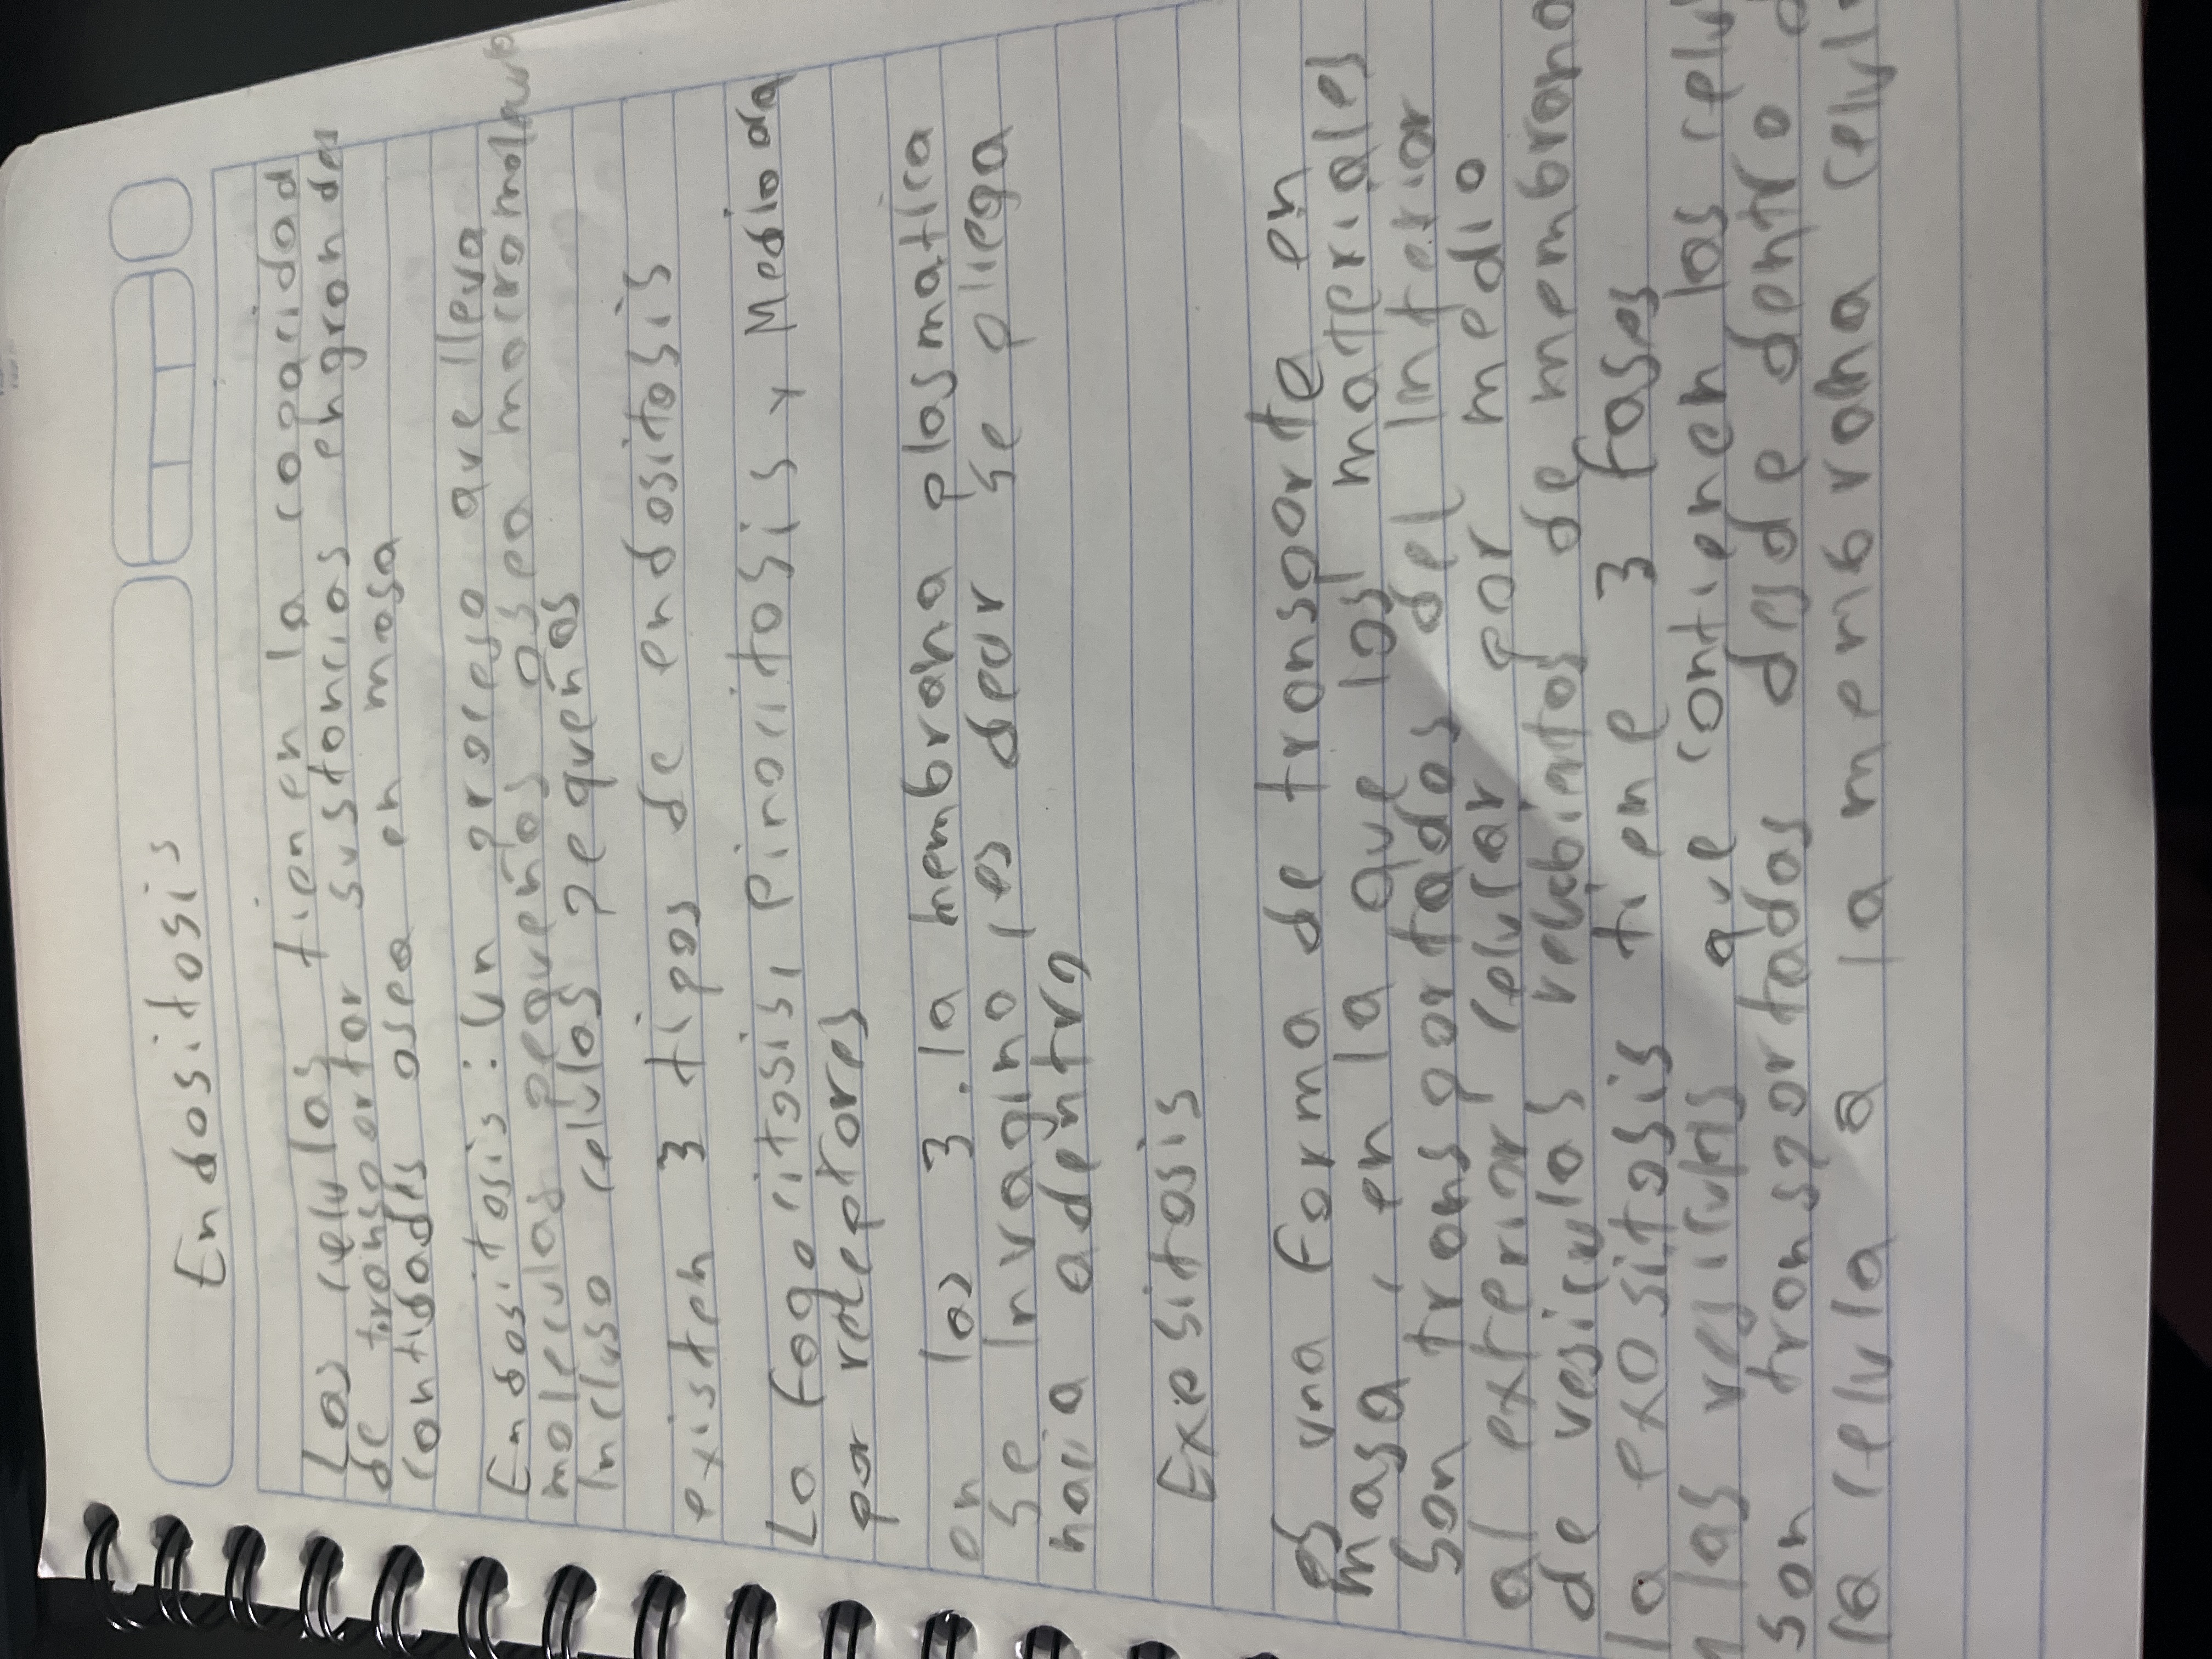 Endositosis
Las celulas tienen la capacidad
de transportar sustancias engrandes
cantidades osea en masa
Endositosis: Un proceso que lleva
moleculas pequeñas osea macromolecula
incluso celulas pequeñas
existen 3 tipos de endositosis
La fagocitosis, pinocitosis y Mediada
por receptores
en las 3. la membrana plasmatica
se invagina, es decir se pliega
hacia adentro
Exositosis
es una forma de transporte en
masa, en la que los materiales
son transportados del interior
al exterior celular por medio
de vesiculas de membrana
la exositosis tiene 3 fases
las vesiculas que contienen las
son transportados desde dentro
la celula a la membrana